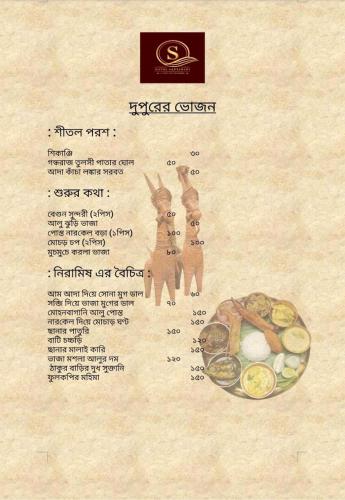 S
দুপুরের ভোজন
: শীতল পরশ :
শিকাঞ্জি ৩০
গন্ধরাজ তুলসী পাতার ঘোল ৫০
আদা কাঁচা লঙ্কার সরবত ৫০
: শুরুর কথা :
বেগুন সুন্দরী (২পিস) ৫০
আলু ঝুড়ি ভাজা ৫০
পোস্ত নারকেল বড়া (১পিস) ১০০
মোচড় চপ (২পিস) ১০০
মুচমুচে করলা ভাজা ৮০
: নিরামিষ এর বৈচিত্র :
আম আদা দিয়ে সোনা মুগ ডাল ৬০
সব্জি দিয়ে ভাজা মুগের ডাল ৭০
মোহনবাগানি আলু পোস্ত ১৫০
নারকেল দিয়ে মোচাড় ঘণ্ট ১৫০
ছানার পাতুরি ১৫০
বাটি চচ্চড়ি ১২০
ছানার মালাই কারি ১৫০
ভাজা মশলা আলুর দম ১২০
ঠাকুর বাড়ির দুধ সুক্তানি ১৫০
ফুলকপির মহিমা ১৫০